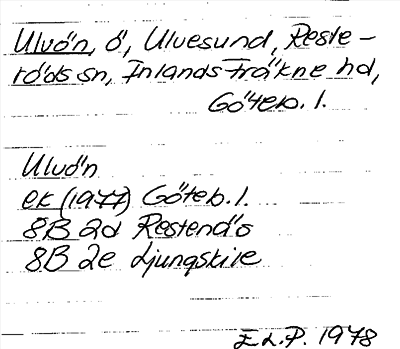 Ulvön, ö, Ulvesund, Reste-
röds sn, Inlands Fräkne hd,
Göteb. l.
Ulvön
ek (1977) Göteb. l.
8B 2d Restenäs
8B 2e Ljungskile
E L.P. 1978